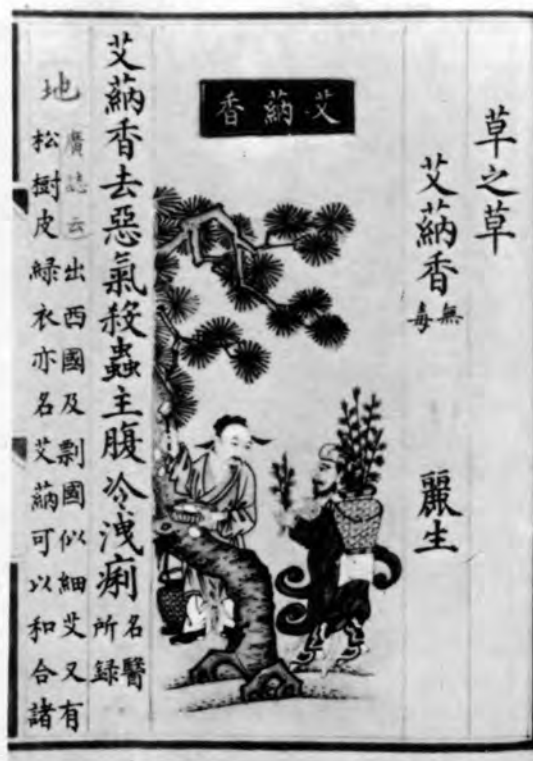 草之草
艾蒳香
無
毒
麗生
艾蒳香
艾蒳香去惡氣殺蟲主腹冷洩痢
名醫
所録
地
廣誌云出西國及剽國似細艾又有
松樹皮綠衣亦名艾蒳可以和合諸